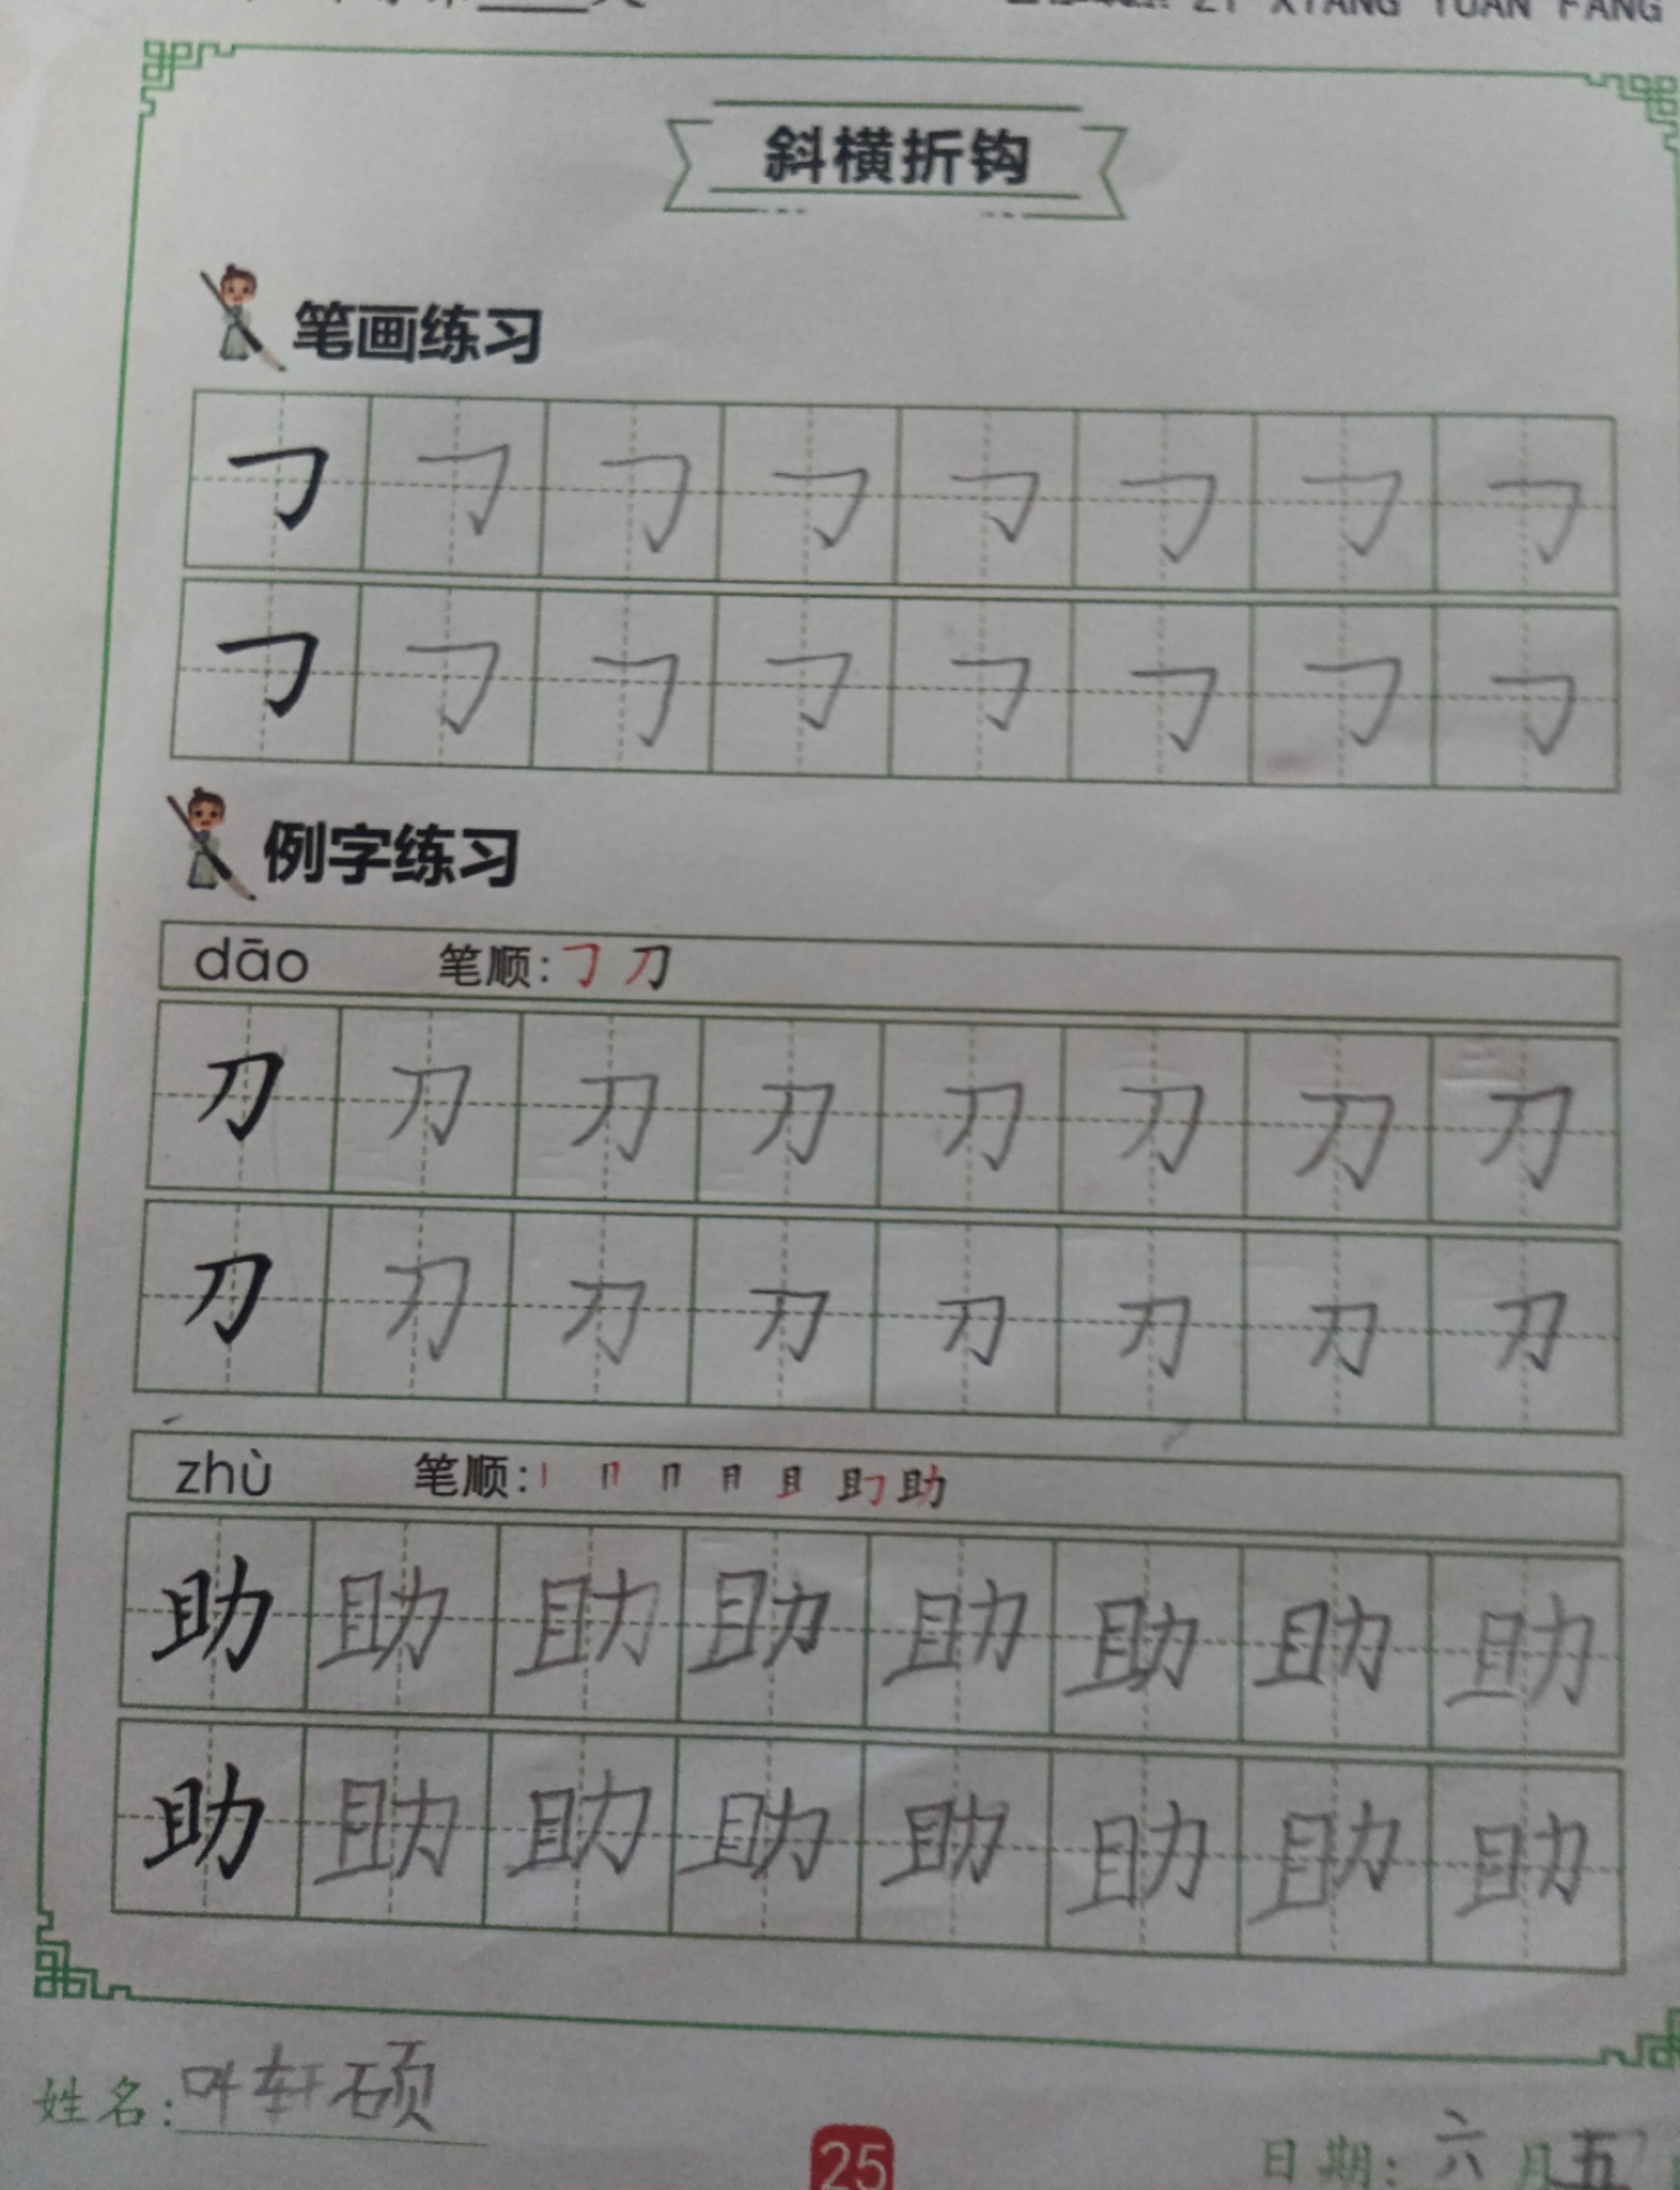 ZI XIANG YUAN FANG
斜横折钩
笔画练习
㇆ ㇆ ㇆ ㇆ ㇆ ㇆ ㇆ ㇆
㇆ ㇆ ㇆ ㇆ ㇆ ㇆ ㇆ ㇆
例字练习
dāo 笔顺: ㇆ 刀
刀 刀 刀 刀 刀 刀 刀 刀
刀 刀 刀 刀 刀 刀 刀 刀
zhù 笔顺: 丨 冂 冂 月 且 助
助 助 助 助 助 助 助 助
助 助 助 助 助 助 助 助
姓名: 叶轩硕
25
日期: 六 月 五